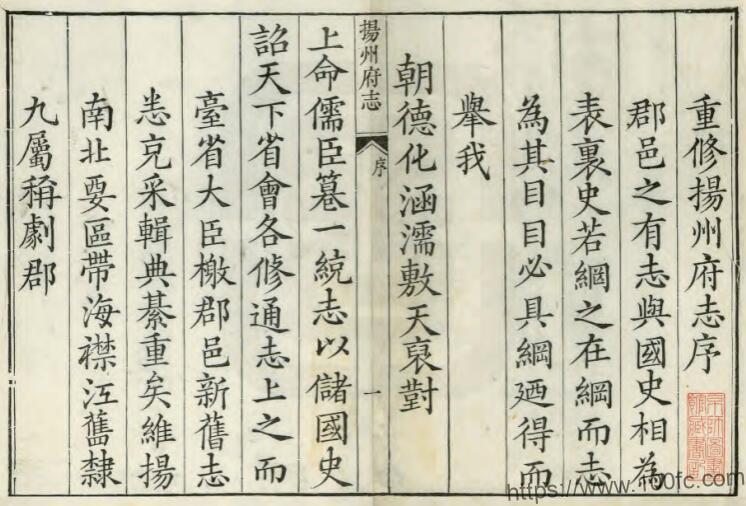 重修揚州府志序
郡邑之有志與國史相為
表裏史若綱之在綱而志
為其目目必具綱廼得而
舉我
朝德化涵濡敷天裒對
揚州府志
序
一
上命儒臣纂一統志以儲國史
詔天下省會各修通志上之而
臺省大臣檄郡邑新舊志
悉克采輯典綦重矣維揚
南北要區帶海襟江舊隸
九屬稱劇郡
京師圖書
館藏書記
https://www.100fc.com